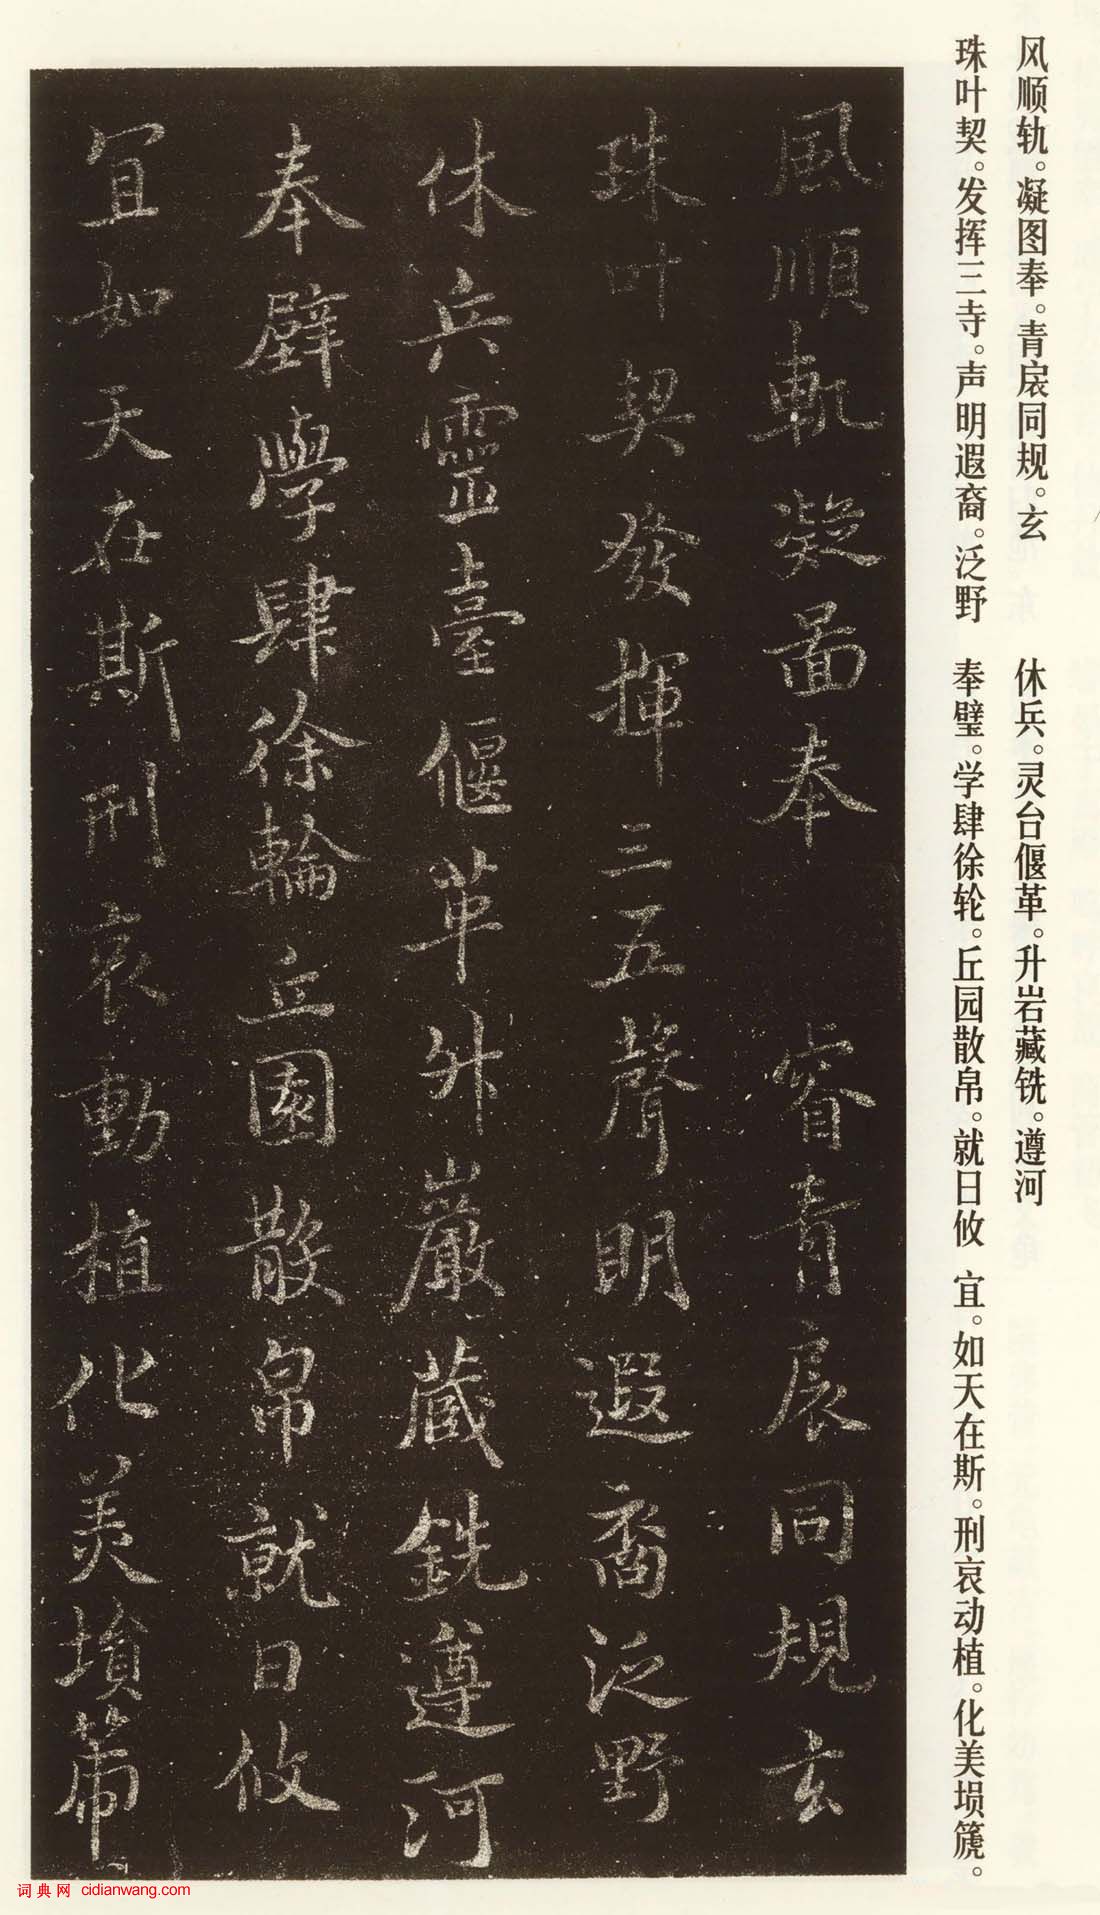 风顺轨。凝图奉。青扆同规。玄
珠叶契。发挥三寺。声明遐裔。泛野
休兵。灵台偃革。升岩藏铣。遵河
奉璧。学肆徐轮。丘园散帛。就日攸
宜。如天在斯。刑哀动植。化美埙篪。
風順軌凝啚奉 睿青扆同規玄
珠叶契發揮三五聲明遐裔泛野
休兵靈臺偃革升巖藏銑遵河
奉璧學肆徐輪丘園散帛就日攸
宜如天在斯刑哀動植化美塤
词典网 cidianwang.com